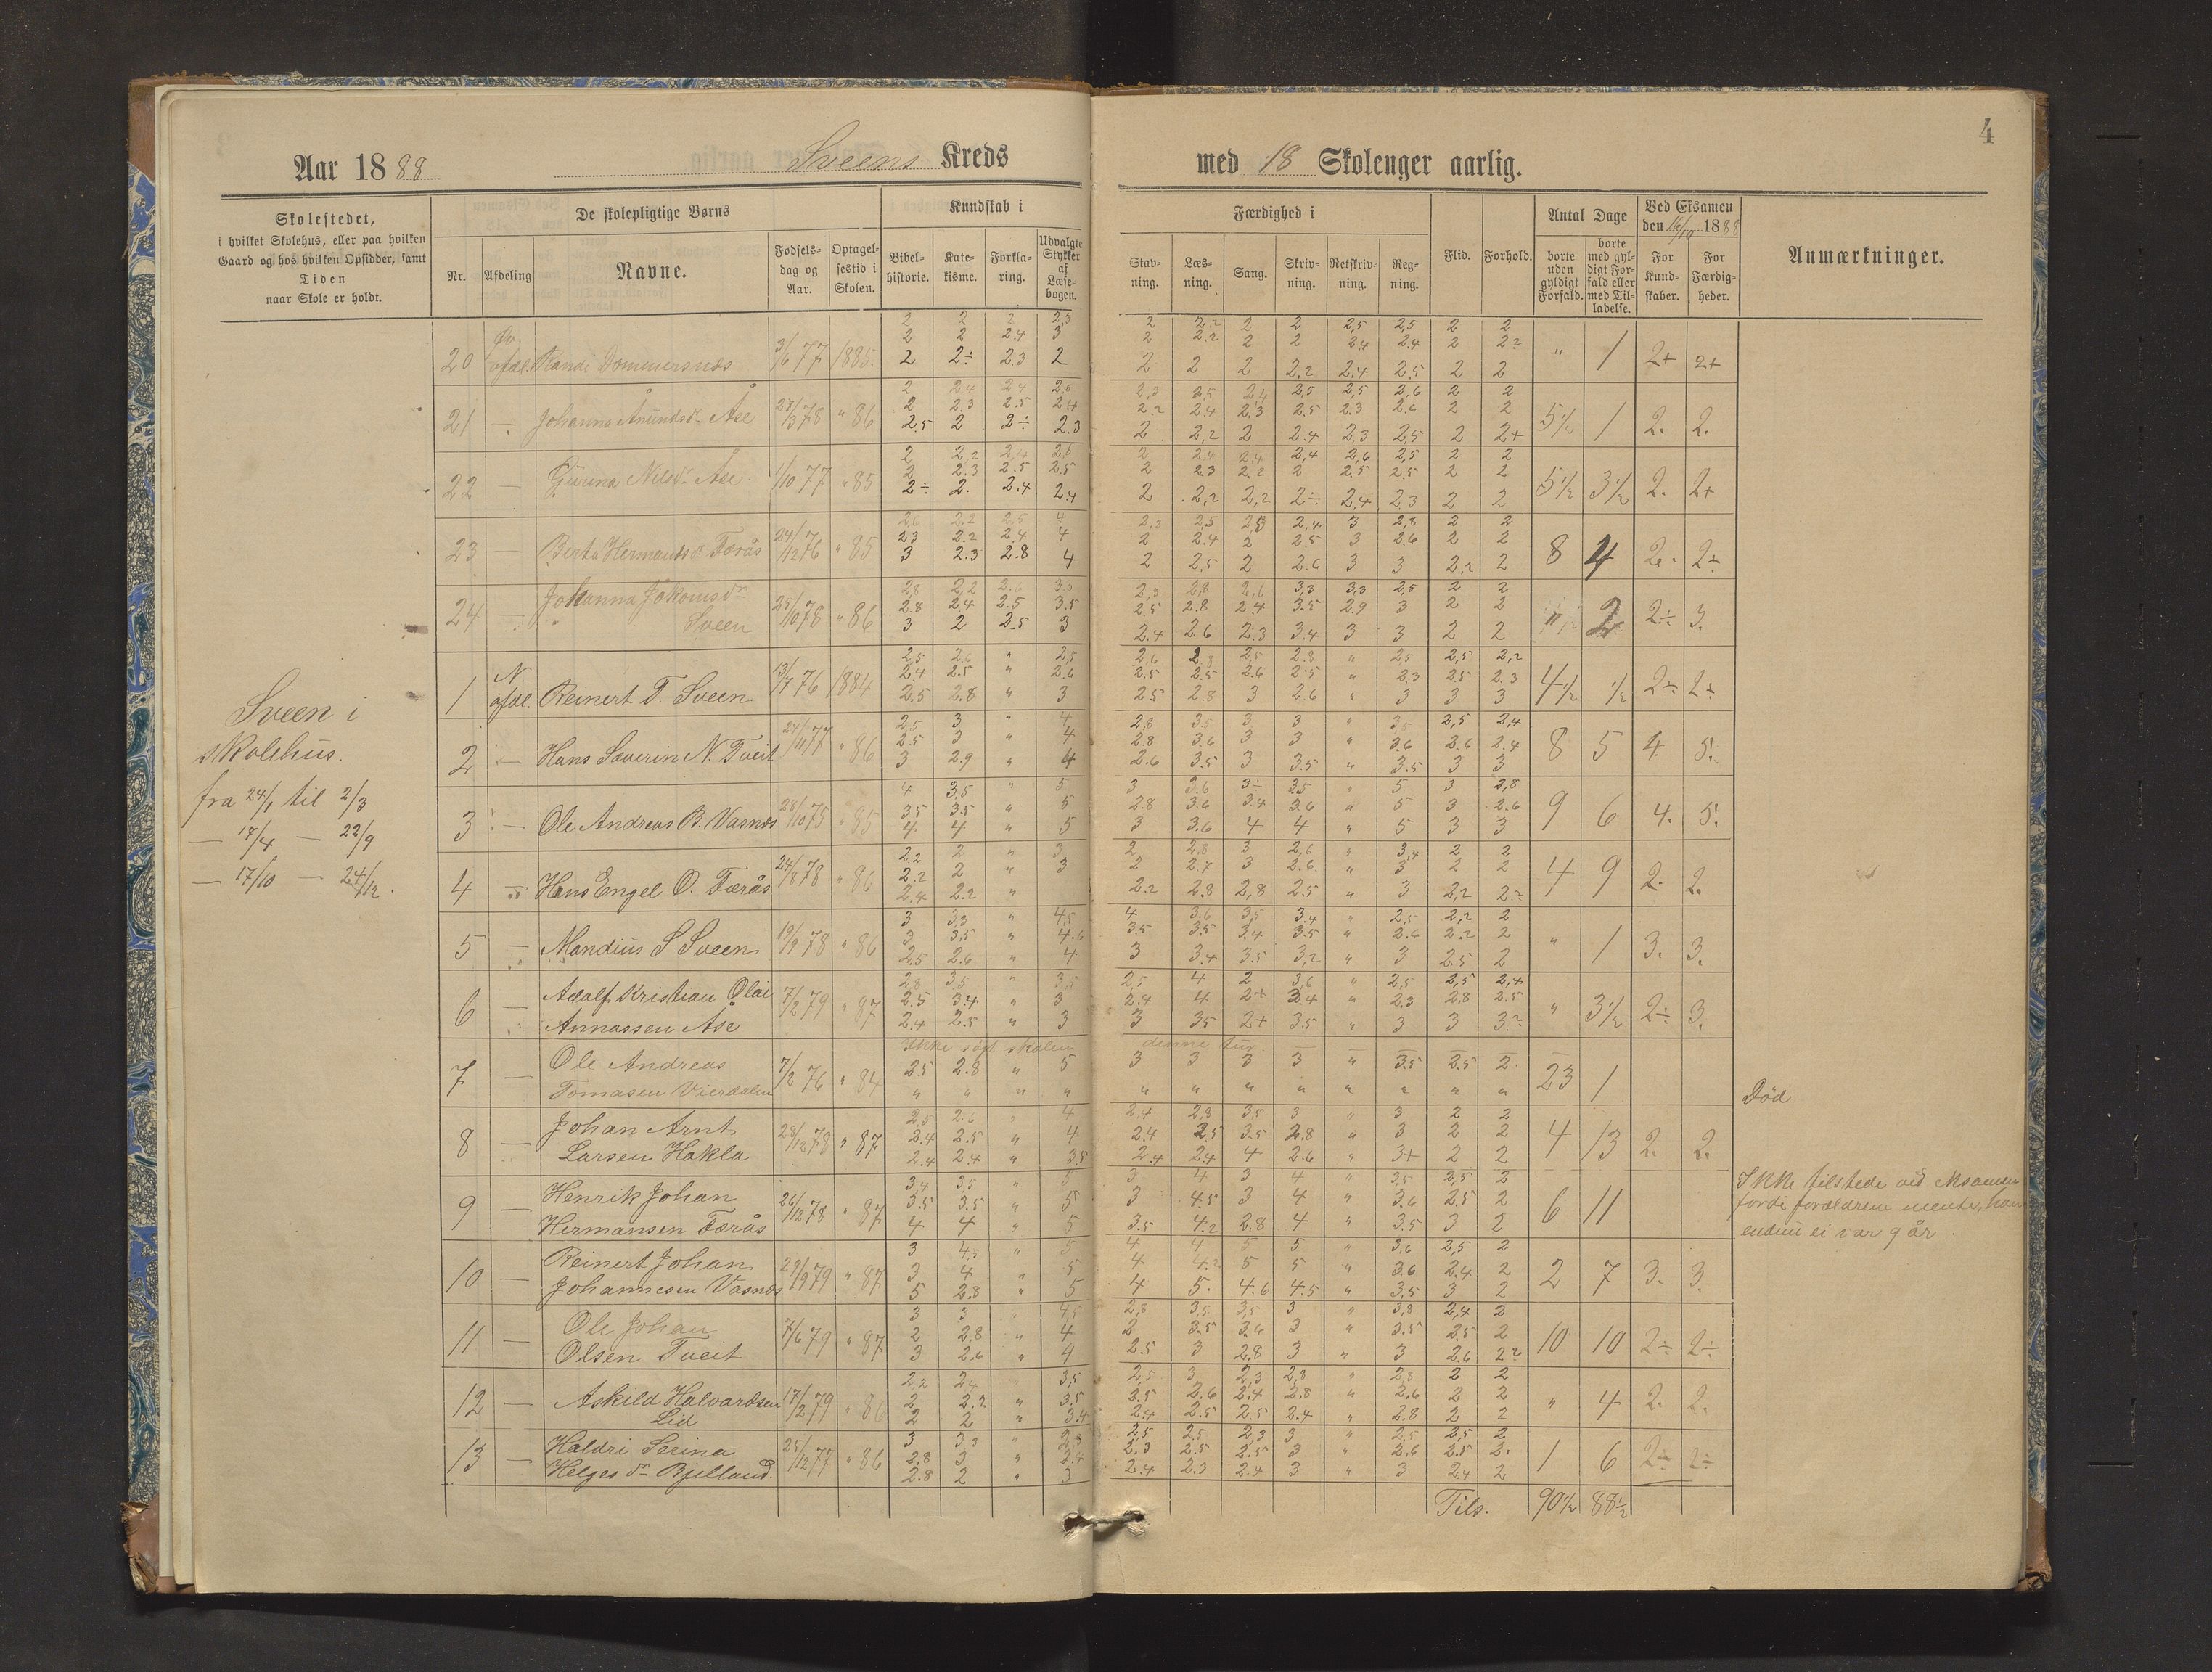 4
Aar 1888 Sveens Kreds med 18 Skolenger aarlig.
Skolestedet,
i hvilket Skolehus, eller paa hvilken
Gaard og hos hvilken Opsidder, samt
Tiden
naar Skole er holdt.
De skolepligtige Børns
Nr. Afdeling Navne. Fødselsdag og Aar. Optagelsestid i Skolen.
Kundskab i
Bibelhistorie. Katekisme. Forklaring. Udvalgte Stykker af Læsebogen.
Færdighed i
Stavning. Læsning. Sang. Skrivning. Retskrivning. Regning.
Flid. Forhold.
Antal Dage
borte uden gyldigt Forfald. borte med gyldigt Forfald eller med Tilladelse.
Ved Eksamen
den 16/10 1888
For Kundskaber. For Færdigheder.
Anmærkninger.
Sveen i
skolehus.
fra 24/1 til 2/3
— 17/4 — 22/9
— 17/10 — 24/12.
2 2 2 2,3 2 2,2 2 2 2,5 2,5 2 2
2 2 2.4 3 2 2.2 2 2 2.4 2.4 2 2?
20 Øv. afdel. Randi Dommersnes 3/6 77 1885. 2 2÷ 2.3 2 2 2 2 2.2 2.4 2.5 2 2 " 1 2+ 2+
2 2.4 2.4 2,6 2,3 2,5 2,4 2,5 2,5 2,6 2 2
2 2.3 2.5 2.4 2.2 2.4 2,3 2.5 2.3 2.6 2 2
21 — Johanna Åmundsdr Åse 27/3 78 " 86 2.5 2 2÷ 2.3 2 2,2 2 2.4 2,3 2,5 2 2+ 5 1/2 1 2. 2.
2 2,2 2,4 2,6 2 2.4 2,4 2,4 2,6 2,5 2 2
2 2.3 2.5 2.5 2 2.3 2.2 2 2.5 2.5 2 2
22 — Nilsdr Åse 1/10 77 " 85 2÷ 2. 2.4 2.4 2 2,2 2,2 2÷ 2,4 2,3 2 2 5 1/2 3 1/2 2. 2+
2,6 2,2 2,5 4 2,2 2,5 2,3 2,4 3 2,8 2 2
2.3 2.2 2.4 4 2 2.4 2 2.5 3 2.6 2 2
23 Berta Hermansdr Færås 24/12 76 " 85 3 2.3 2.8 4 2 2,5 2 2.6 3 3 2.2 2 8 4 2. 2÷
2,8 2,2 2.6 3.3 2,3 2,8 2,6 3,3 3,3 2,5 2 2
24 — Johanna Jokomsdr 25/10 78 " 86 2.8 2.4 2.5 3.5 2.5 2.8 2.4 3.5 2.9 3 2 2 " 2 2÷ 3.
Sveen 3 2 2.5 3 2.4 2.6 2.3 3.4 3 3 2 2
2,5 2,6 " 2,5 2,6 2,8 2,5 2,8 " 2,5 2,5 2,2
2,4 2.5 " 2.6 2.5 2.5 2.6 2.5 " 2.3 2.5 2.3
1 N. afdel. Reinert T. Sveen 13/7 76 1884 2.5 2.8 " 3 2.5 2.8 3 2.6 " 3 3 3 4 1/2 1/2 2÷ 2÷
2,5 3 " 4 2,8 3.5 3 3 " 3,5 2,5 2,4
2.5 3 " 4 2.8 3.6 3 3 " 3.6 2.6 2.4
2 — Hans Severin N. Tveit 24/11 77 " 86 3 2.9 " 4 2.6 3.5 3 3.5 " 3.5 3 3 8 5 4. 5.
4 3,5 " 5 3 3.6 3÷ 3.5 " 5 3 2,8
3.5 3.5 " 5 2.8 3.6 3.4 3.6 " 5 3 2.6
3 — Ole Andreas B. Vasnes 28/10 75 " 85 4 4 " 5 3 3.6 4 4 " 5 3 3 9 6 4. 5.
2.2 2 " 3 2 2,8 3 2,6 " 3,4 2 2
2.2 2 " 3 2 2.7 3 2.6 " 3 2 2
4 — Hans Engel O. Færås 24/8 78 " 86 2.4 2.2 " 2.2 2.8 2,8 2.5 " 3 2,2 2.? 4 9 2. 2.
3 3,3 " 4,5 4 3.6 3,5 3.4 " 2,5 2,2 2
3 3.5 " 4.6 3.5 3.5 3.4 3.5 " 2.6 2.2 2
5 — Mandius S Sveen 19/9 78 " 86 2.5 2.6 " 4 3 3.4 3.5 3,2 " 3 2.5 2 " 1 3. 3.
2,8 3,5 " 3,5 2,5 4 2 3,6 " 2,5 2,5 2,4
6 — Adolf Kristian Olai 7/2 79 " 87 2.5 3.4 " 3 2.4 4 2+ 3.4 " 2.3 2.8 2.5 " 3 1/2 2÷ 3.
Annassen Åse 2.4 2.5 " 3 3 3.5 2+ 3.5 " 3 3 3.?
Ikke søgt skolen denne tur
7 — Ole Andreas 7/2 76 " 84 2.5 2.8 " 5 3 3 3 3 " 3.5 2.5 2. 23 1
Tomasen Vierdalen " " " " " " " " " " " " Død
2,5 2.6 4 2.4 2,8 3,5 3 " 3 2 2
8 — Johan Arnt 28/12 78 " 87 2.4 2.5 " 4 2.4 2.5 3.5 2.8 " 3 2 2 4 13 2. 2.
Larsen Hakla 2.4 2.4 " 3.5 2.4 2.4 4 2.6 " 3+ 2 2
3,4 3,5 " 5 3 4 3 4 " 3,5 2,5 2
9 — Henrik Johan 26/12 78 " 87 3.5 3.5 " 5 3 4.5 3 4 " 3.6 2.5 2 6 11
Hermansen Færås 4 4 " 5 3.5 4.2 2.8 4 " 3.5 3 2
Ikke tilstede ved eksamen
fordi forældrene mente, han
endnu ei var 9 år.
3 4,3 " 5 4 4 5 5 " 3,6 2,5 2
10 — Reinert Johan 29/9 79 " 87 3 4 " 5 4 4.2 5 5 " 3.6 2.4 2 2 7 3. 3.
Johannesen Vasnes 5 2.8 " 5 4 5. 4.6 4.5 " 3,5 3 2
3 3 " 4,5 2,8 3,5 3,5 3 " 3,8 2,4 2
11 — Ole Johan 7/6 79 " 87 2 2.8 " 4 2 3.5 3.6 3 " 3.5 2.5 2 10 10 2÷ 2÷
Olsen Tveit 3 2.6 " 4 2.5 3 2.8 3 " 3 2.6 2?
2,2 2,4 3,5 2,5 3 2,3 2,8 " 2,8 2 2
12 — Askild Halvardsen 17/2 79 " 86 2 2.2 " 3.5 2.5 2.6 2.4 2.8 " 2.6 2 2 " 4 2. 2.
Lid 2 2 " 3.4 2.4 2.5 2.5 2.4 " 2.8 2 2
3 3,3 " 2,8 2.5 2,5 2,3 3 " 2,5 2,5 2
13 — Haldri Serina 25/12 77 " 86 2.8 3 " 2.4 2.3 2.5 2.5 3 " 2.6 2.5 2. 1 6 2÷ 2÷
Helgesdr Bjelland. 2.8 2 " 3 2.4 2.3 2.4 3 " 3 2.4 2
Tils. 90 1/2 88 1/2